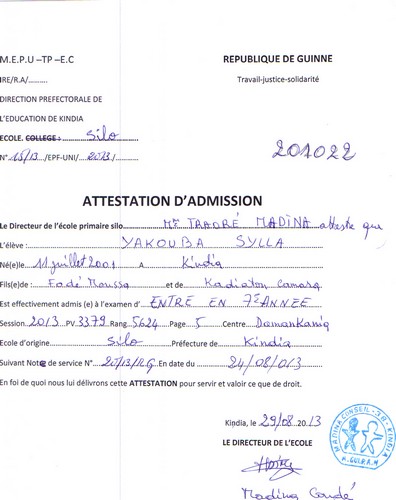 M.E.P.U –TP –E.C
REPUBLIQUE DE GUINNE
IRE/R.A/..........
Travail-justice-solidarité
DIRECTION PREFECTORALE DE
L'EDUCATION DE KINDIA
ECOLE. COLLEGE : Silo
201022
N° 15/13 /EPF-UNI/ 2013 /
ATTESTATION D'ADMISSION
Le Directeur de l'école primaire silo Mr TRAORÉ MADINA atteste que
L'élève : YAKOUBA SYLLA
Né(e)le 11 juillet 2001 A Kindia
Fils(e)de : Fodé Moussa et de Kadiatou Camara
Est effectivement admis (e) à l'examen d' ENTRE EN 7e ANNEE
Session 2013 PV 3379 Rang 5624 Page 5 Centre Damankaniq
Ecole d'origine Silo Préfecture de Kindia
Suivant Note de service N° 20/13/RG En date du 24/08/013
En foi de quoi nous lui délivrons cette ATTESTATION pour servir et valoir ce que de droit.
Kindia, le 29/08 20 13
LE DIRECTEUR DE L'ECOLE
MADINA CONSEIL - KINDIA
Madina Condé